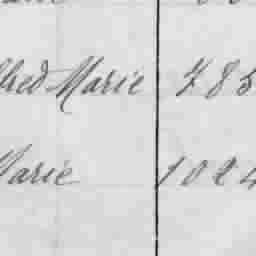 lfred Marie 785
Marie 1024